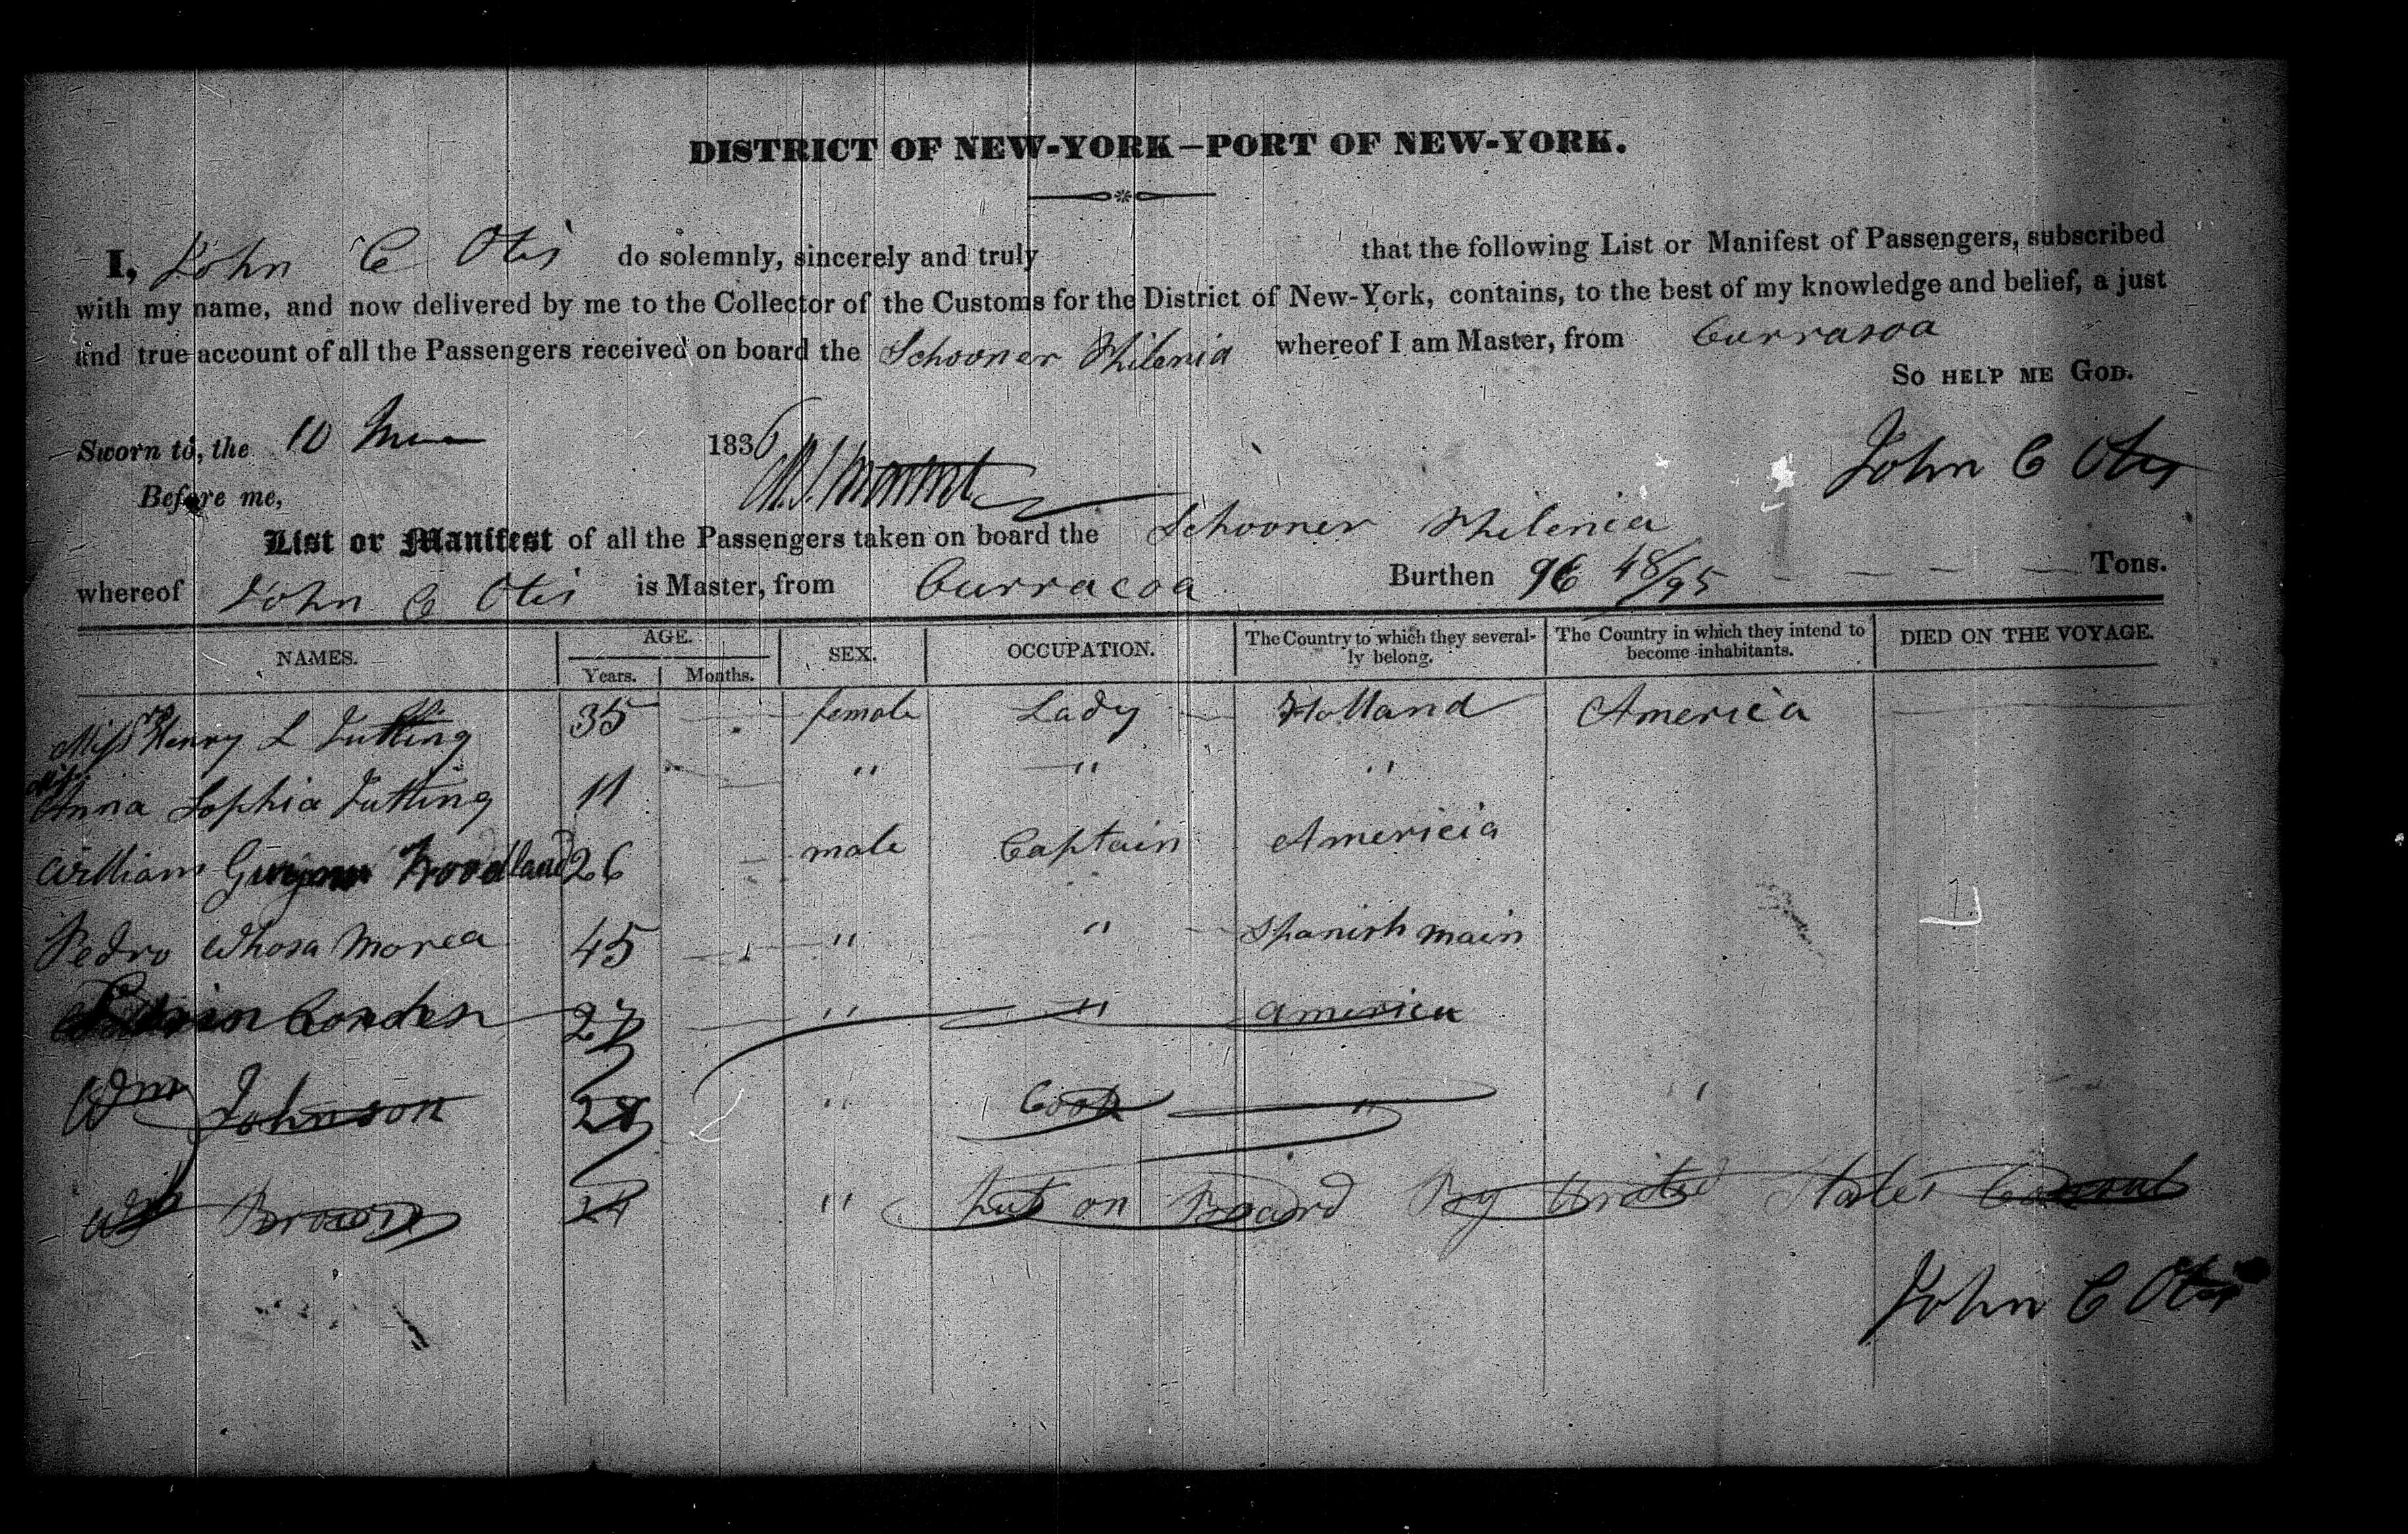 DISTRICT OF NEW-YORK—PORT OF NEW-YORK.
I, John C Otis do solemnly, sincerely and truly that the following List or Manifest of Passengers, subscribed
with my name, and now delivered by me to the Collector of the Customs for the District of New-York, contains, to the best of my knowledge and belief, a just
and true account of all the Passengers received on board the Schooner Philenia whereof I am Master, from Currasoa
SO HELP ME GOD.
Sworn to, the 10 1836
John C Otis
Before me,
List or Manifest of all the Passengers taken on board the Schooner Philenia
whereof John C Otis is Master, from Curracoa Burthen 96 48/95 Tons.
NAMES. AGE. Years. Months. SEX. OCCUPATION. The Country to which they severally belong. The Country in which they intend to become inhabitants. DIED ON THE VOYAGE.
Henry L Jutting 35 female Lady Holland America
Anna Sophia Jutting 11 " " "
William Woodland 26 male Captain Americia
Pedro Whosa Morea 45 " " Spanish main
27 " " America
Wm Johnson 28 " Cook "
Wm Brown 24 " Put on Board By United States Consul
John C Otis